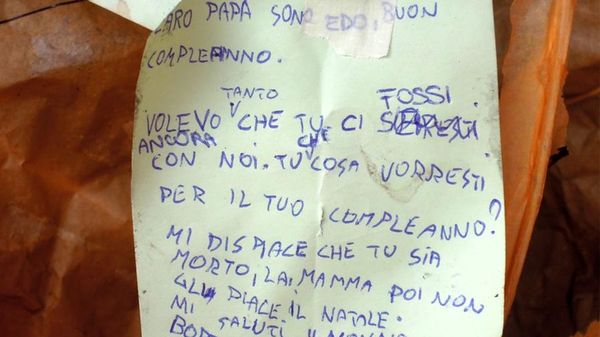 CARO PAPA SONO EDO, BUON
COMPLEANNO.
TANTO FOSSI.
VOLEVO CHE TU CI
ANCORA CHE
CON NOI. TU COSA VORRESTI
PER IL TUO COMPLEANNO?
MI DISPIACE CHE TU SIA
MORTO, LA MAMMA POI NON
GLI PIACE IL NATALE.
MI SALUTI IL NONNO